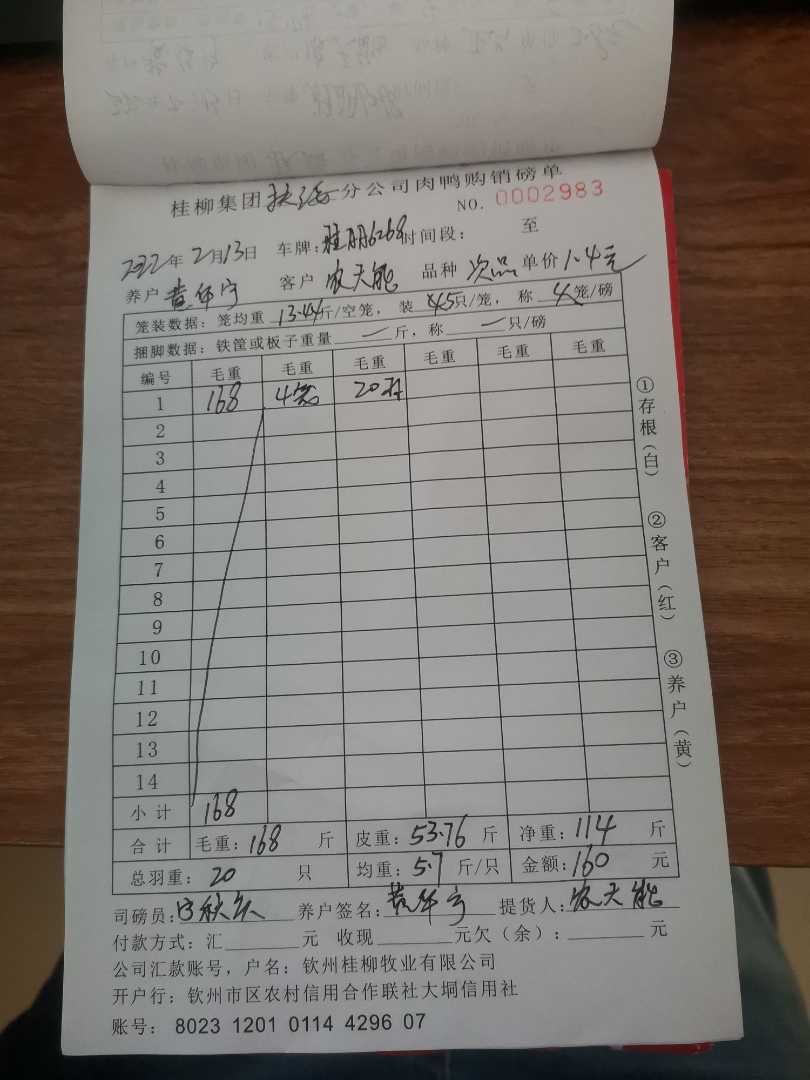 桂柳集团扶绥分公司肉鸭购销磅单
NO. 0002983
2022年2月13日 车牌:桂 时间段: 至
养户 黄华宁 客户 农天能 品种 次品 单价1.4元
笼装数据:笼均重 13.44斤/空笼, 装 45只/笼, 称 4笼/磅
捆脚数据:铁筐或板子重量 — 斤, 称 — 只/磅
编号 毛重 毛重 毛重 毛重 毛重 毛重
1 168 4笼 20只
2
3
4
5
6
7
8
9
10
11
12
13
14
小计 168
合计 毛重:168 斤 皮重:53.76 斤 净重:114 斤
总羽重:20 只 均重:5.7 斤/只 金额:160 元
司磅员: 养户签名:黄华宁 提货人:农天能
付款方式:汇 元 收现 元欠(余): 元
公司汇款账号, 户名:钦州桂柳牧业有限公司
开户行:钦州市区农村信用合作联社大垌信用社
账号: 8023 1201 0114 4296 07
①存根(白)
②客户(红)
③养户(黄)